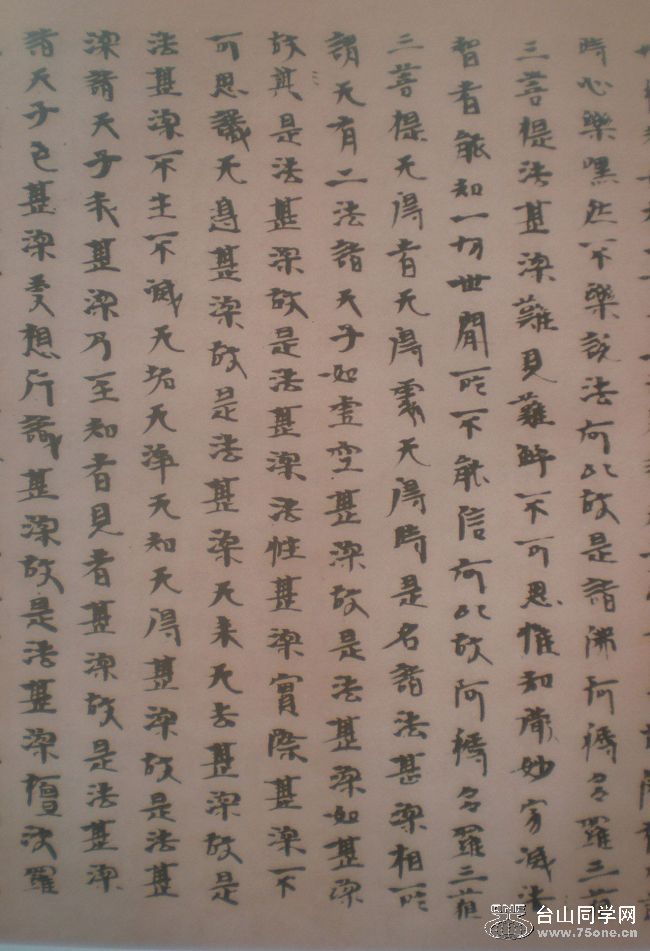 時心樂嘿然不樂說法何以故是諸佛阿耨多羅三藐
三菩提法甚深難見難解不可思惟知微妙寂滅法
智者能知一切世間所不能信何以故阿耨多羅三藐
三菩提无得者无得處无得時是名諸法甚深相所
謂无有二法諸天子如虛空甚深故是法甚深如甚深
故其是法甚深故是法甚深法性甚深實際甚深不
可思議无邊甚深故是法甚深无來无去甚深故是
法甚深不生不滅无垢无淨无知无得甚深故是法甚
深諸天子我甚深乃至知者見者甚深故是法甚深
諸天子色甚深受想行識甚深故是法甚深檀波羅
ONE 台山同学网
www.75one.cn